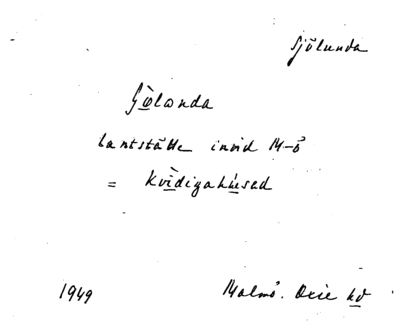 Sjölunda
Sjò̲landa
lantställe invid M-ö
= Kvì̲digahú̲sad
1949 Malmö. Oxie hd